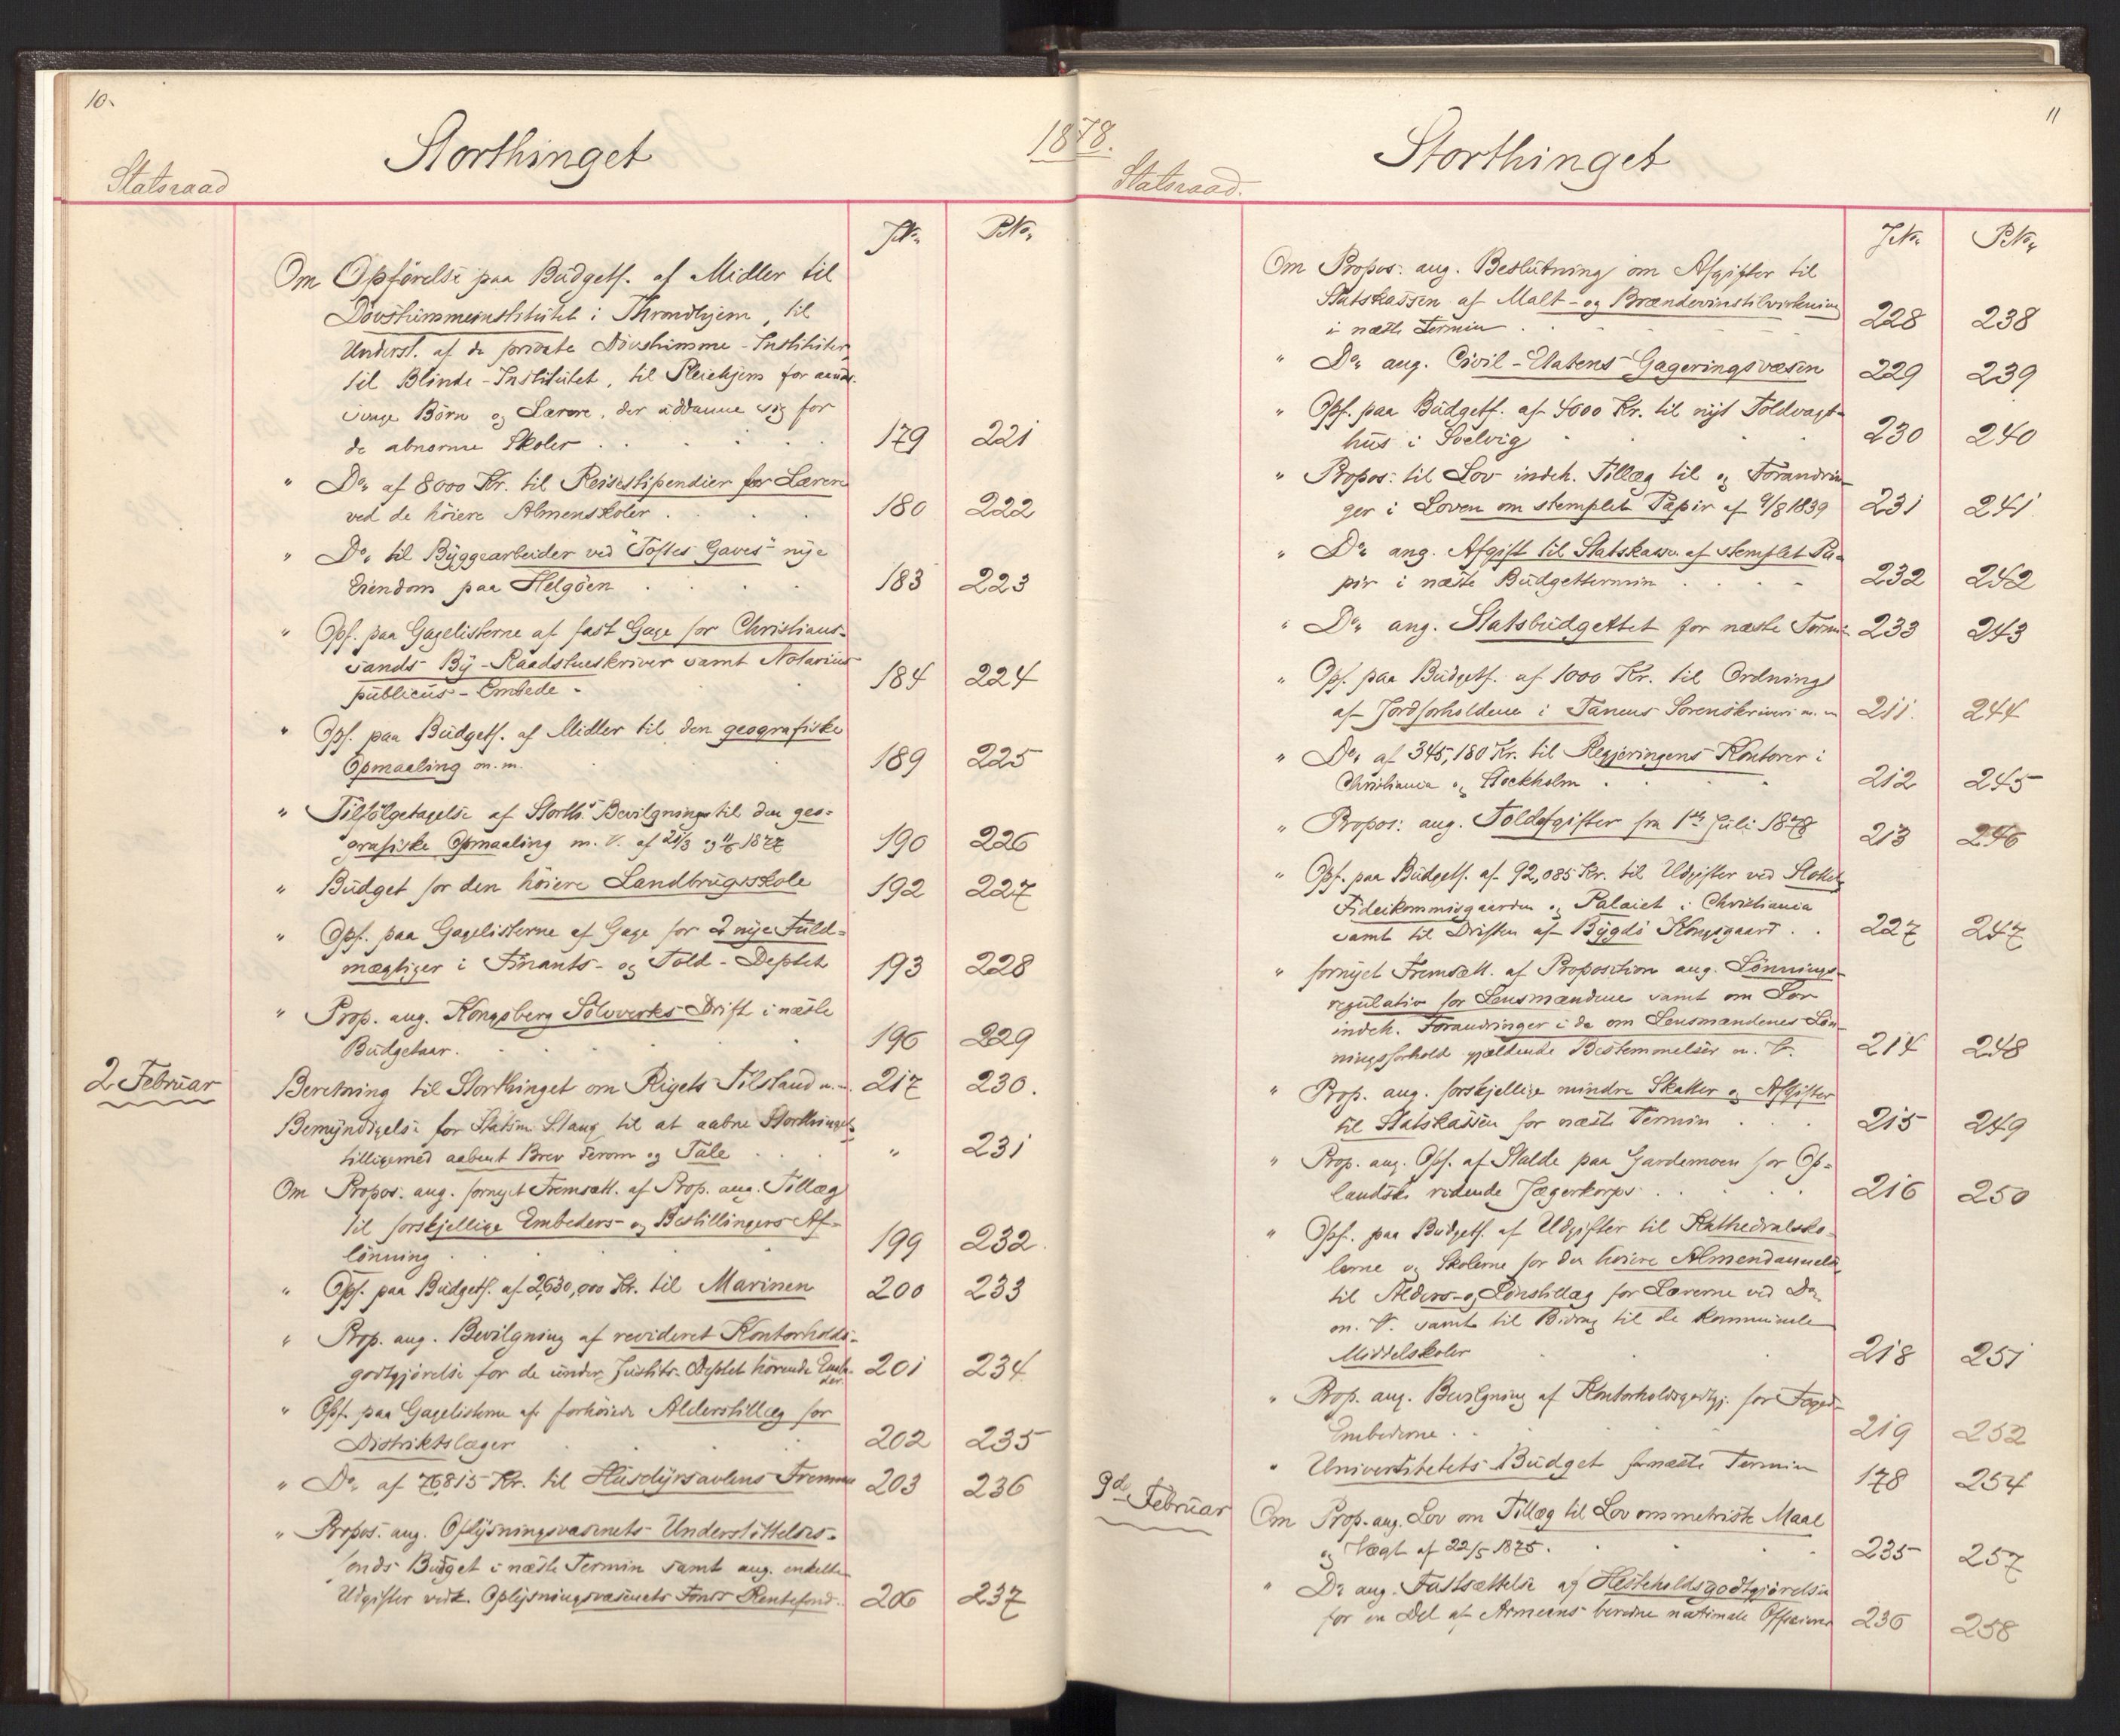 10.
Storthinget
1878.
Statsraad
JNo. PNo.
Om Opförelse paa Büdgetf. af Midler til
Dövstümmeinstitütet i Throndhjem, til
Underst. af de private Dövstümme-Institüter,
til Blinde-Institütet, til Pleiehjem for aands-
svage Börn og Lærere, der üddanne sig for
de abnorme Skoler . . . . 179 221
" Do. af 8000 Kr. til Reisestipendier for Lærere
ved de höiere Almenskoler . . . 180 222
" Do. til Byggearbeider ved "Toftes Gaves" nye
Eiendom paa Helgöen . . . 183 223
" Opf. paa Gagelisterne af fast Gage for Christians-
sands By-Raadstueskriver samt Notarius
publicüs-Embede . 184 224
" Opf. paa Büdgetf. af Midler til den geografiske
Opmaaling m. m. 189 225
" Tilfölgetagelse af Storth's Bevilgninger til den geo-
grafiske Opmaaling m. V. af 21/3 og 1877 190 226
" Büdget for den höiere Landbrugsskole 192 227
" Opf. paa Gagelisterne af Gage for 2 nye Füld-
mægtiger i Finants- og Told-Deptet 193 228
" Prop. ang. Kongsberg Sölvverks Drift i næste
Büdgetaar . . . . 196 229
2 Februar
Beretning til Storthinget om Rigets Tilstand m.m. 217 230.
Bemyndigelse for Statsm. Stang til at aabne Storthinget
tilligemed aabent Brev derom og Tale . . . " 231
Om Propos. ang. fornyet Fremsætt. af Prop. ang. Tillæg
til forskjellige Embeders- og Bestillingers Af-
lönning . . . 199 232.
" Opf. paa Büdgetf. af 2,630,000 Kr. til Marinen 200 233
" Prop. ang. Bevilgning af revideret Kontorholds-
godtgjörelse for de ünder Jüstits-Deptet hörende Embe-
der. 201 234
" Opf. paa Gagelisterne af forhöiede Alderstillæg for
Distriktslæger . . . 202 235
" Do. af 76815 Kr. til Hüsdyrsavlens Fremme 203 236
" Propos. ang. Oplysningsvæsenets Understöttelses-
fonds Büdget i næste Termin samt ang. enkelte
Udgifter vedk. Oplysningsvæsenets Fonds Rentefond. 206 237
11
Storthinget
Statsraad.
JNo. PNo.
Om Propos. ang. Beslütning om Afgifter til
Statskassen af Malt- og Brændevinstilvirkning
i næste Termin . . . 228 238
" Do. ang. Civil-Etatens Gageringsvæsen 229 239
" Opf. paa Büdgetf. af 4000 Kr. til nyt Toldvagt-
hüs i Svelvig . . 230 240
" Propos. til Lov indeh. Tillæg til og Forandrin-
ger i Loven om stemplet Papir af 9/8 1839 231 241
" Do. ang. Afgift til Statskassen af stemplet Pa-
pir i næste Büdgettermin . . . 232 242
" Do. ang. Statsbüdgettet for næste Termin 233 243
" Opf. paa Büdgetf. af 1000 Kr. til Ordning
af Jordforholdene i Tanens Sorenskriveri m. m 211. 244
" Do. af 345,180 Kr. til Regjeringens Kontorer i
Christiania og Stockholm . . 212 245
" Propos. ang. Toldafgifter fra 1ste Jüli 1878 213 246
" Opf. paa Büdgetf. af 92,085 Kr. til Udgifter ved Slottet,
Fideikommisgaarden og Palaiet i Christiania
samt til Driften af Bygdö Kongsgaard . . 227 247
" fornyet Fremsætt. af Proposition ang. Lönnings-
regülativ for Lensmændene samt om Lov
indeh. Forandringer i de om Lensmændenes Lön-
ningsforhold gjældende Bestemmelser m. V. 214 248
" Prop. ang. forskjellige mindre Skatter og Afgifter
til Statskassen for næste Termin . . . 215 249
" Prop. ang. Opf. af Stalde paa Gardemoen for Op-
landske ridende Jægerkorps . . . 216 250
" Opf. paa Büdgetf. af Udgifter til Kathedralsko-
lerne og Skolerne for den höiere Almendannelse,
til Alders- og Lönstillæg for Lærerne ved Do.
m. V. samt til Bidrag til de kommunale
Middelskoler . . 218 251
" Prop. ang. Bevilgning af Kontorholdsgodtgj. for Foged-
Embederne . . 219 252
" Universitetets Büdget for næste Termin 178 254
9de Februar
Om Prop. ang. Lov om Tillæg til Lov om metriske Maal
og Vægt af 22/5 1875. . . . 235 257
" Do. ang. Fastsættelse af Hesteholdsgodtgjörelse
for en Del af Armeens beredne nationale Officierer 236 258